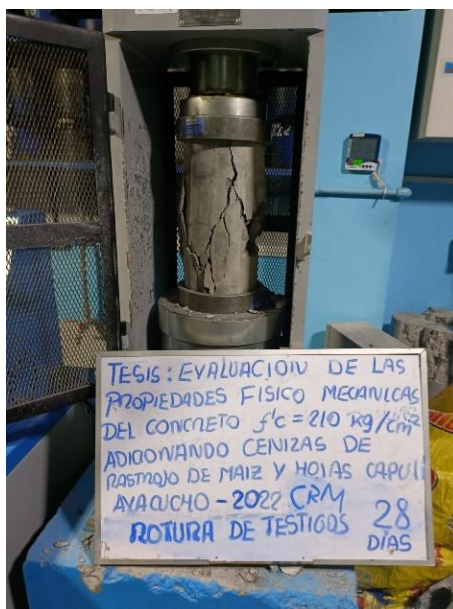 TESIS: EVALUACION DE LAS
PROPIEDADES FISICO MECANICAS
DEL CONCRETO f'c = 210 Kg/cm²
ADICIONANDO CENIZAS DE
RASTROJO DE MAIZ Y HOJAS CAPULI
AYACUCHO - 2022 CRM
ROTURA DE TESTIGOS 28
DÍAS